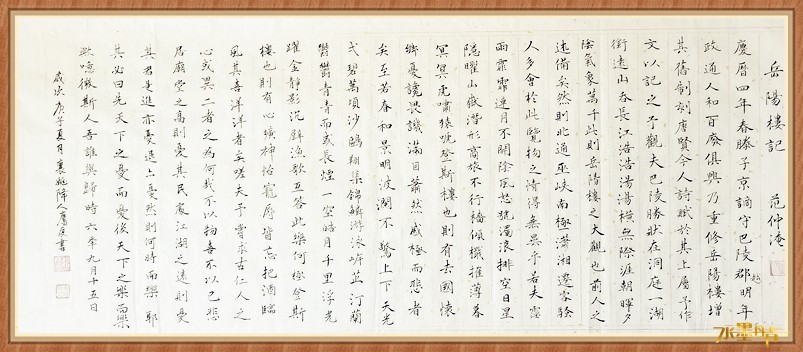 岳陽樓記 范仲淹
慶曆四年春滕子京謫守巴陵郡越明年
政通人和百廢俱興乃重修岳陽樓增
其舊制刻唐賢今人詩賦於其上屬予作
文以記之予觀夫巴陵勝狀在洞庭一湖
銜遠山吞長江浩浩湯湯橫無際涯朝暉夕
陰氣象萬千此則岳陽樓之大觀也前人之
述備矣然則北通巫峽南極瀟湘遷客騷
人多會於此覽物之情得無異乎若夫霪
雨霏霏連月不開陰風怒號濁浪排空日星
隱曜山嶽潛形商旅不行檣傾楫摧薄暮
冥冥虎嘯猿啼登斯樓也則有去國懷
鄉憂讒畏譏滿目蕭然感極而悲者
矣至若春和景明波瀾不驚上下天光
弌碧萬頃沙鷗翔集錦鱗游泳岸芷汀蘭
鬱鬱青青而或長煙一空皓月千里浮光
躍金靜影沉璧漁歌互答此樂何極登斯
樓也則有心曠神怡寵辱皆忘把酒臨
風其喜洋洋者矣嗟夫予嘗求古仁人之
心或異二者之為何哉不以物喜不以己悲
居廟堂之高則憂其民處江湖之遠則憂
其君是進亦憂退亦憂然則何時而樂耶
其必曰先天下之憂而憂後天下之樂而樂
歟噫微斯人吾誰與歸時六年九月十五日
歲次庚子夏月書
水墨丹青